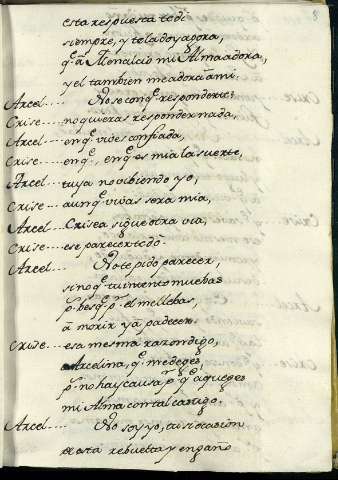 8
esta respuesta te di
siempre, y te la doy agora,
q̃ â Menalcio mi Alma adora,
y el tambien me adora â mi.
Arcel.... No se con q̃ responderte;
Crise.... no quieras responder nada,
Arcel.... en q̃ vives confiada,
Crise.... en q̃, en q̃ es mia la suerte,
Arcel.... tuya no vibiendo yo,
Crise.... aunq̃ vivas sera mia,
Arcel.... Crisea sigue otra via,
Crise.... ese parecer te dò.
Arcel.... No te pido parecer,
sino q̃ tu intento muebas
p.ʳ bes q̃ p.ʳ el me llebas,
â morir y â padecer.
Crise.... esa mesma razon digo,
Arcelina, q̃ me deges,
p.ʳ no hay causa p.ʳ q̃ aqueges
mi Alma con tal castigo,
Arcel.... No soy yo, tu si ocasion
esta rebuelta y engaño